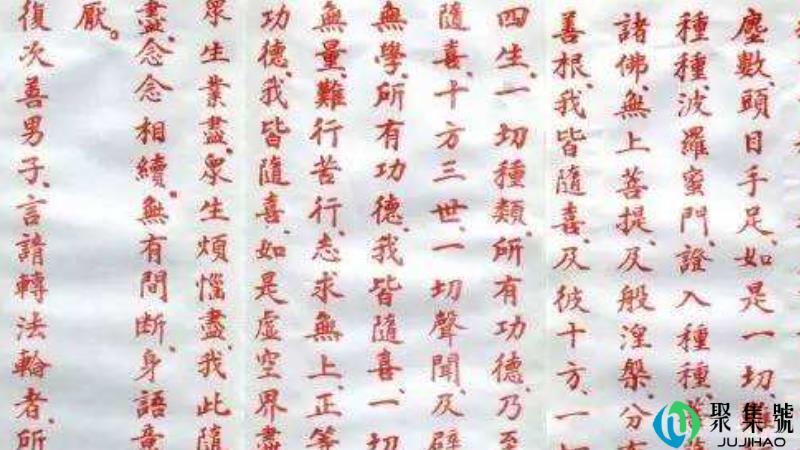 塵數、頭目手足、如是一切、難
種種、波羅蜜門、證入種種、菩
諸佛、無上菩提、及般涅槃、分布
善根、我皆隨喜、及彼十方、一切
四生、一切種類、所有功德、乃至
隨喜、十方三世、一切聲聞、及辟
無學、所有功德、我皆隨喜、一切
無量、難行苦行、志求無上、正等
功德、我皆隨喜、如是虛空界盡
眾生業盡、眾生煩惱盡、我此隨
盡、念念相續、無有間斷、身語意
厭。
復次善男子、言請轉法輪者、所
聚集號
JUJIHAO